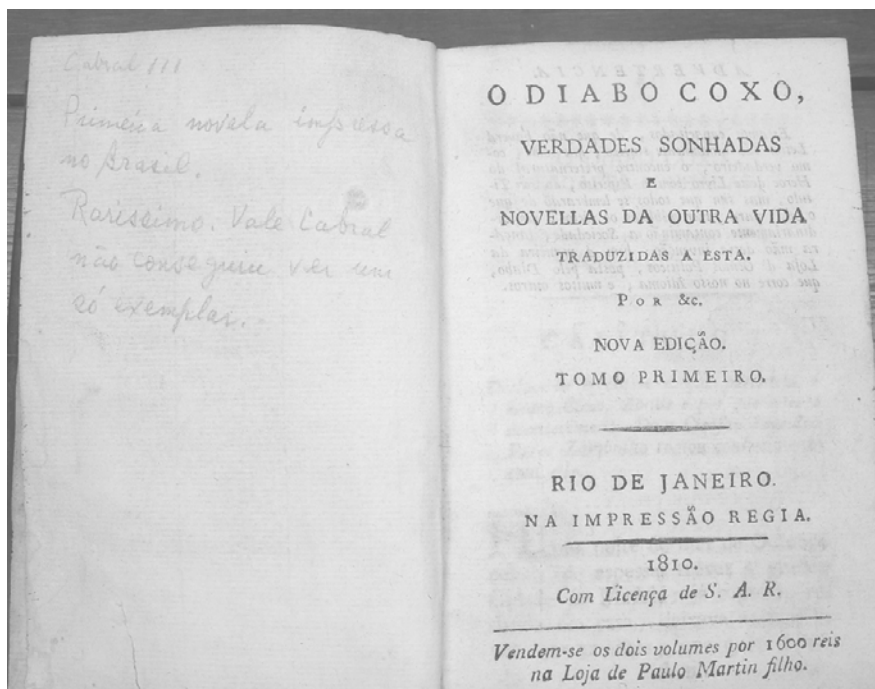 Cabral 111
Primeira novela impressa
no Brasil.
Rarissimo. Vale Cabral
não conseguiu ver um
só exemplar.
O DIABO COXO,
VERDADES SONHADAS
E
NOVELLAS DA OUTRA VIDA
TRADUZIDAS A ESTA.
POR &c.
NOVA EDIÇÃO.
TOMO PRIMEIRO.
RIO DE JANEIRO.
NA IMPRESSÃO REGIA.
1810.
Com Licença de S. A. R.
Vendem-se os dois volumes por 1600 reis
na Loja de Paulo Martin filho.